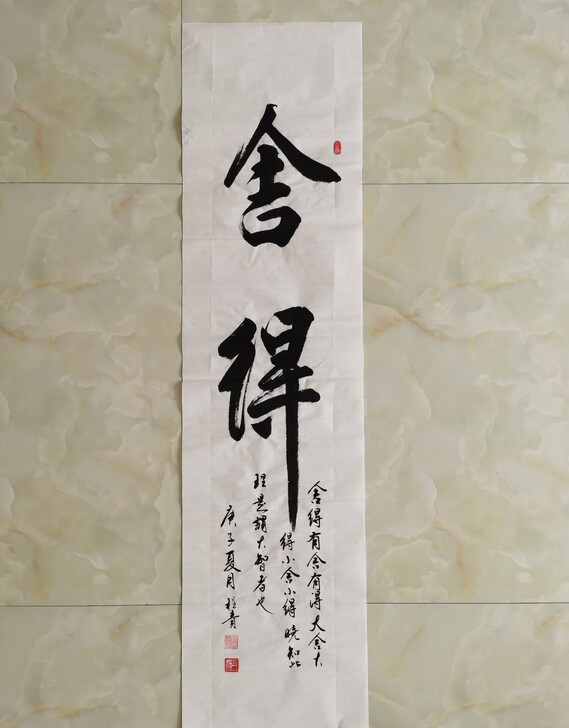 舍得
舍得有舍有得大舍大
得小舍小得晓知此
理是谓大智者也
庚子夏月程青